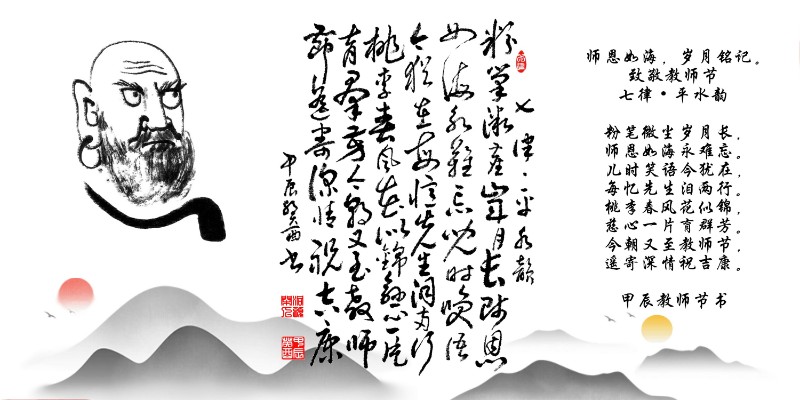 师恩如海，岁月铭记。
致敬教师节
七律·平水韵
粉笔微尘岁月长，
师恩如海永难忘。
儿时笑语今犹在，
每忆先生泪两行。
桃李春风花似锦，
慈心一片育群芳。
今朝又至教师节，
遥寄深情祝吉康。
甲辰教师节书
七律·平水韵
粉筆微塵歲月長師恩
如海永難忘兒時笑語
今猶在每憶先生淚两行
桃李春風花似錦慈心一片
育羣芳今朝又至教師
節遙寄深情祝吉康